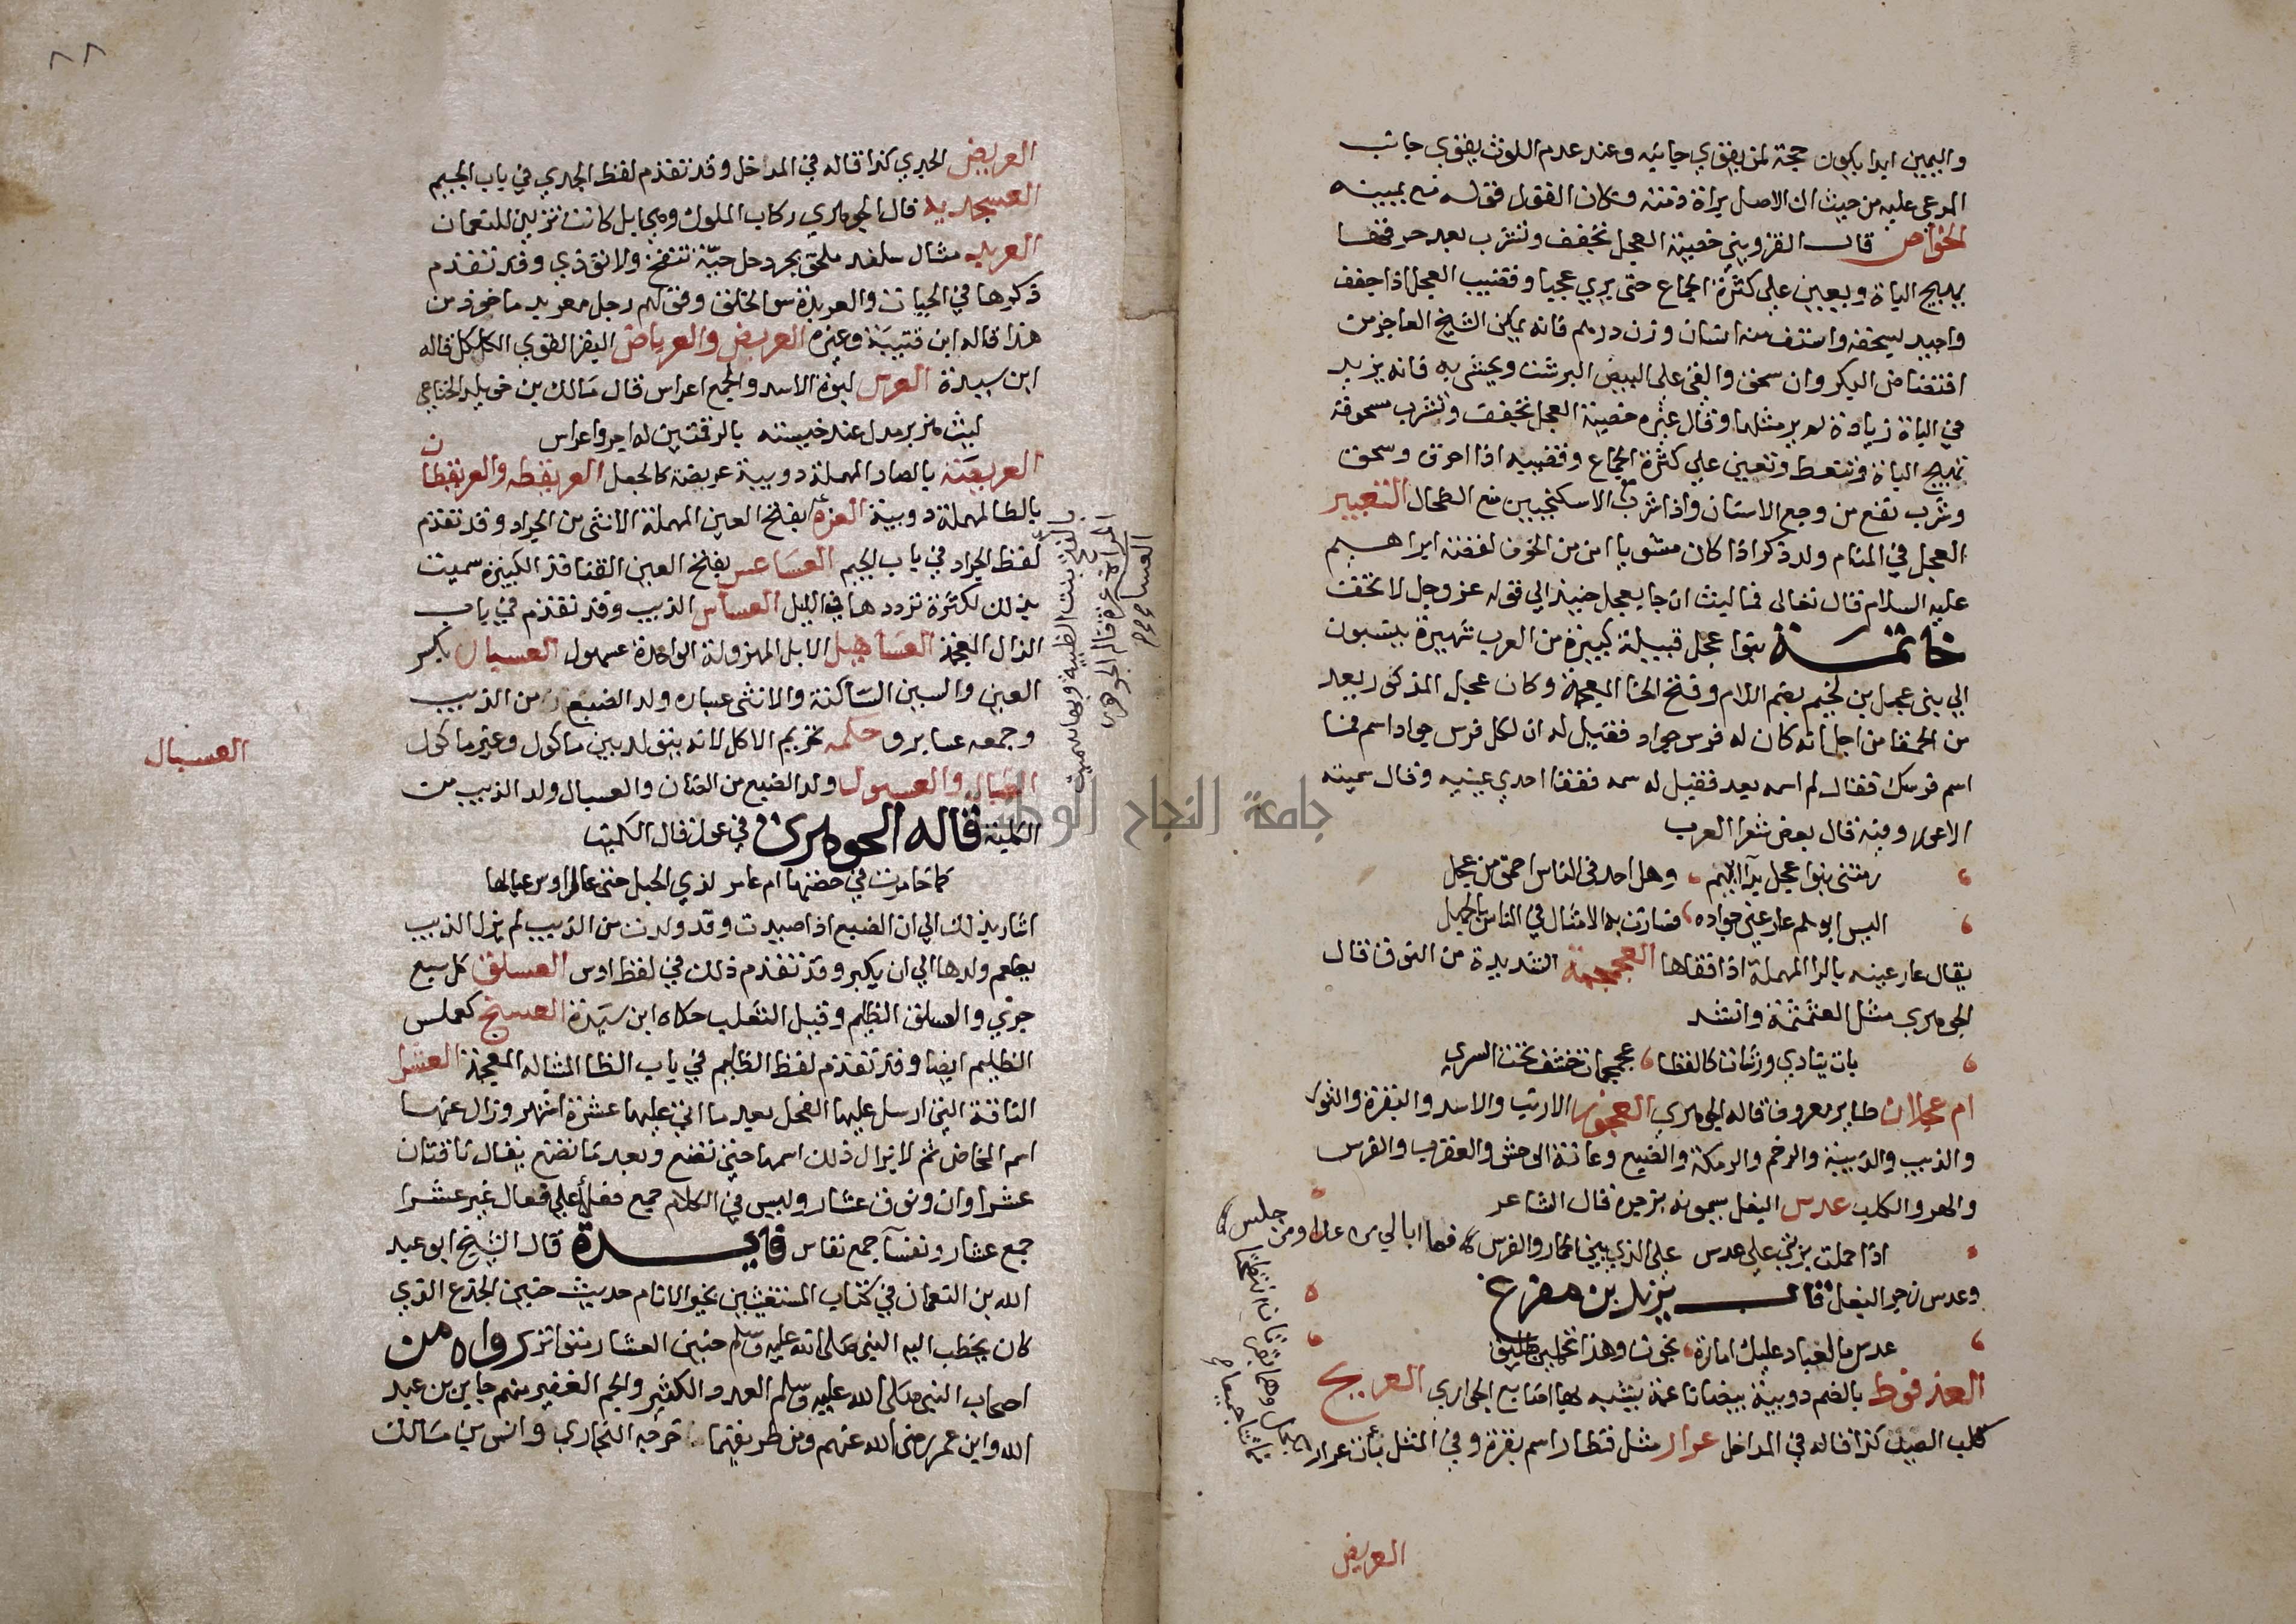 واليمين ابدا يكون حجة لمن يقوي جانبه وعند عدم اللوث يقوي جانب
المدعي عليه من حيث ان الاصل براة ذمته وكان القول قوله مع يمينه
الخواص قال القزويني خصية العجل تجفف وتشرب بعد حرقها
يهيج الباة ويعين علي كثرة الجماع حتى يري عجبا وقضيب العجل اذا جفف
واجيد سحقه واستف منه انسان وزن درهم فانه يمكن الشيخ العاجز من
افتضاض البكر وان سحق والقي علي البيض البرشت ويحشى به فانه يزيد
في الباة زيادة لم ير مثلها وقال غيره خصية العجل تجفف وتشرب مسحوقة
تهيج الباة وتنعظ وتعين علي كثرة الجماع وقضيبه اذا احرق وسحق
وشرب نفع من وجع الاسنان واذا شرب مع الاسكنجبين نفع الطحال التعبير
العجل في المنام ولد ذكر واذا كان مشويا امن من الخوف لقصة ابراهيم
عليه السلام قال تعالى فما لبث ان جا بعجل حنيذ الي قوله عز وجل لا تخف
خاتمة بنوا عجل قبيلة كبيرة من العرب شهيرة ينسبون
الي بني عجل بن لجيم بضم اللام وفتح الحا المعجمة وكان عجل المذكور يعد
من الحمقا من اجل انه كان له فرس جواد فقيل له ان لكل فرس جواد اسم فما
اسم فرسك فقال لم اسمه بعد فقيل له سمه ففقا احدي عينيه وقال سميته
الاعور وفيه قال بعض شعرا العرب
رمتني بنوا عجل بدا ابيهم وهل احد في الناس احمق من عجل
اليس ابوهم عار عين جواده فسارت به الامثال في الناس بالجهل
يقال عار عينه بالرا المهملة اذا فقاها العجمجمة الشديدة من النوق قال
الجوهري مثل العثمثمة وانشد
بات يباري ورشات كالقطا عجمجمات خشف تحت السري
ام عجلان طاير معروف قاله الجوهري العجوز الارنب والاسد والبقرة والثور
والذيب والذيبة والرخم والرمكة والضبع وعانة الوحش والعقرب والفرس
والهر والكلب عدس البغل سموه بزجره قال الشاعر
اذا حملت بزتي علي عدس علي الذي بين الحمار والفرس فما ابالي من عدا ومن جلس
وعدس زجر البغل قال يزيد بن مفرغ
عدس ما لعباد عليك امارة نجوت وهذا تحملين طليق
العذفوط بالضم دويبة بيضا ناعمة يشبه بها اصابع الجواري العربج
كلب الصيد كذا قاله في المداخل عرار مثل قطار اسم بقرة وفي المثل باءت عرار
بكحل وهما بقرتان انتطحتا
فماتتا جميعا
العريض
العريض الجدي كذا قاله في المداخل وقد تقدم لفظ الجدي في باب الجيم
العسجدية قال الجوهري ركاب الملوك وهي ابل كانت تزين للنعمان
العربد مثال سلغد ملحق بجردحل حية تنفخ ولا توذي وقد تقدم
ذكرها في الحيات والعربدة سو الخلق وقولهم رجل معربد ماخوذ من
هذا قاله ابن قتيبة وغيره العربض والعرباض البقر القوي الكلكل قاله
ابن سيدة العرس لبوة الاسد والجمع اعراس قال مالك بن خويلد الخناعي
ليث هزبر مدل عند خيسته بالرقمتين له اجر واعراس
العريقصة بالصاد المهملة دويبة عريضة كالجعل العريقطه والعريقطان
بالطا المهملة دويبة العزة بفتح العين المهملة الانثى من الجراد وقد تقدم
لفظ الجراد في باب الجيم العساعس بفتح العين القنافذ الكبيرة سميت
بذلك لكثرة ترددها في الليل العساس الذيب وقد تقدم في باب
الذال المعجمة العساهيل الابل المهزولة الواحدة عسهول العسبار بكسر
العين والسين الساكنة والانثى عسبارة ولد الضبع من الذيب
وجمعه عسابر وحكمه تحريم الاكل لانه يتولد بين ماكول وغير ماكول
والعسول ولد الضبع من الضان والعسبال ولد الذيب من
العسبال
الكلبة قاله الجوهري في عول قال الكميت
كما خامرت في حضنها ام عامر لذي الحبل حتى عال اوس عيالها
اشار بذلك الي ان الضبع اذا صيدت وقد ولدت من الذيب لم يزل الذيب
يطعم ولدها الي ان يكبر وقد تقدم ذلك في لفظ اوس العسلق كل سبع
جري والعسلق الظليم وقيل الثعلب حكاه ابن سيدة العسنج كعملس
الظليم ايضا وقد تقدم لفظ الظليم في باب الظا المشالة المعجمة العشرا
الناقة التي ارسل عليها الفحل بعد ما اتي عليها عشرة اشهر وزال عنها
اسم المخاض ثم لا يزال ذلك اسمها حتى تضع وبعد ما تضع يقال ناقتان
عشراوان ونوق عشار وليس في الكلام جمع فعلا علي فعال غير عشرا
جمع عشار ونفسا جمع نفاس فايدة قال الشيخ ابو عبد
الله بن النعمان في كتاب المستغيثين بخير الانام حديث حنين الجذع الذي
كان يخطب اليه النبي صلى الله عليه وسلم حنين العشار متواتر رواه من
اصحاب النبي صلى الله عليه وسلم العدد الكثير والجم الغفير منهم جابر بن عبد
الله وابن عمر رضى الله عنهم ومن طريقهما اخرجه البخاري وانس بن مالك
بالعزة بنت الظبية وبها سميت
المراة عزة قاله الجوهري
جامعة النجاح الوطنية
٨٨